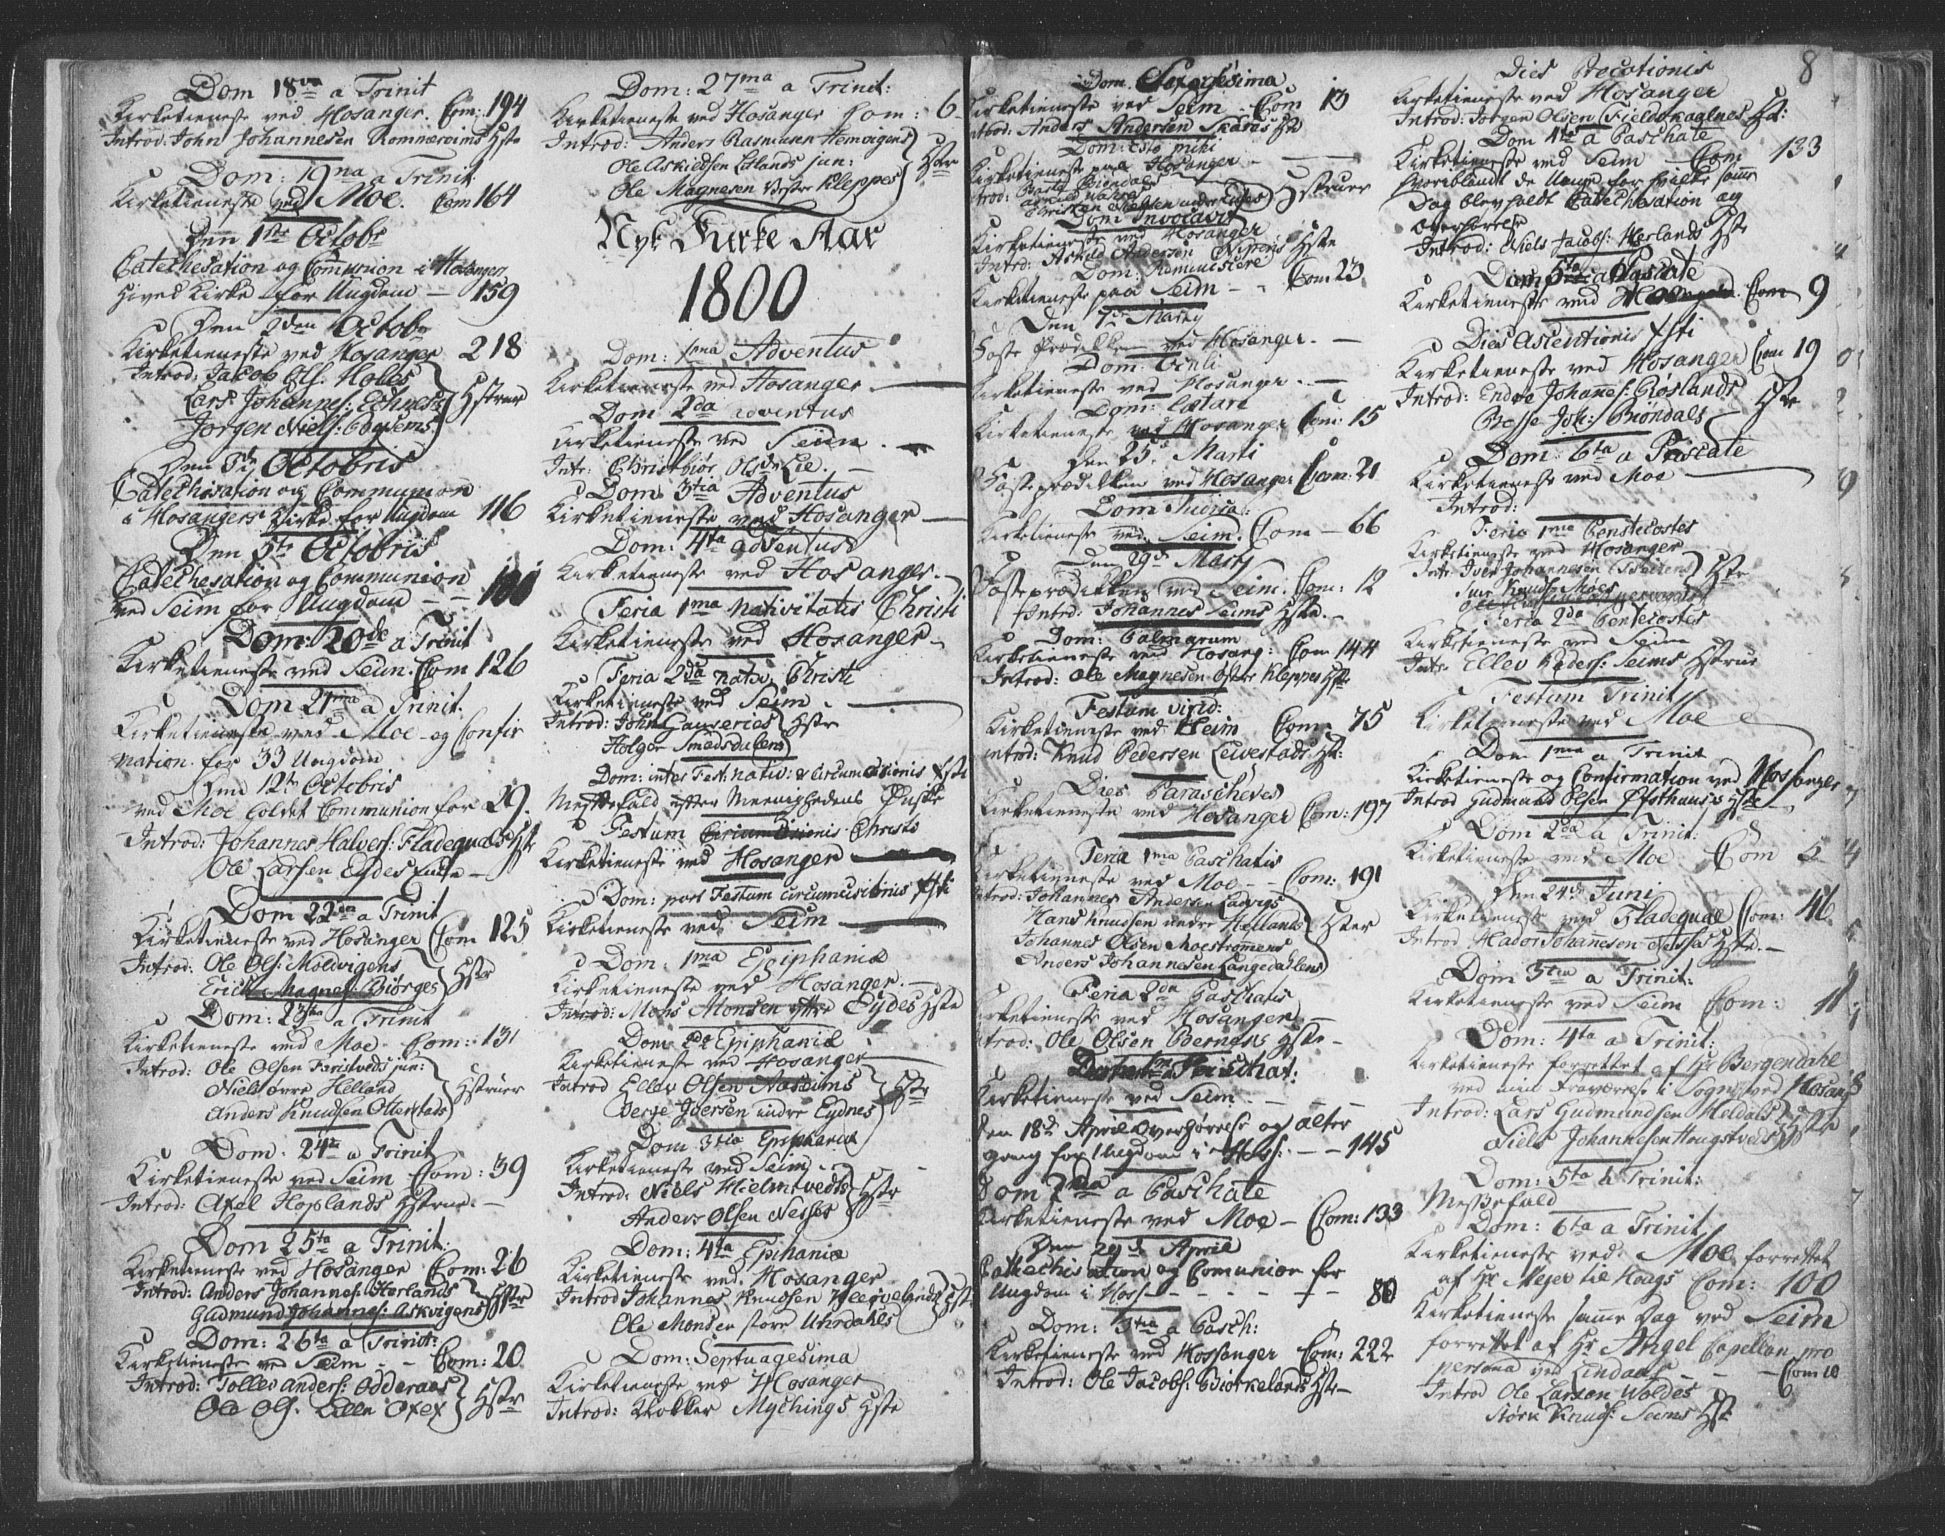 Dom 18va a Trinit
Kirketieneste ved Hosanger. Com: 194
Introd: John Johannesen Rommereims Hste
Dom: 19na a Trinit
Kirketieneste ved Moe. Com 164
Den 1ste Octobr
Catechesation og Communion i Hosanger
Hoved Kirke for Ungdom — 159
Den 2den Octobr
Kirketieneste ved Hosanger 218
Introd: Jacob Ols: Holes
Lars Johannes:
Jorgen Niels: Hstruer
Den Octobris
Catechisation og Communion
i Hosangers Kirke for Ungdom 116
Den 5te Octobris
Catechesation og Communion
ved Seim for Ungdom - -
Dom: 20de a Trinit
Kirketieneste ved Seim: Com 126
Dom 21ma a Trinit:
Kirketieneste ved Moe og Confir
nation for 33 Ungdom
Den 12te Octobris
ved Moe holdet Communion for 29.
Introd: Johannes Halvers: Fladequals Hste
Ole Larsen Eydes Enke —
Dom 22da a Trinit
Kirketieneste ved Hosanger Com 125
Introd: Ole Ols: Moldvigens
Erick Magnes: Biörges Hstr
Dom: 23tia a Trinit
Kirketieneste ved Moe. Com: 131
Introd: Ole Olsen Faristveds jun:
Niels övre Helland
Anders Knudsen Otterstads Hstruer
Dom: 24ta a Trinit
Kirketieneste ved Seim Com: 39
Introd: Axel Hoplands Hstrue. —
Dom 25ta a Trinit:
Kirketieneste ved Hosanger Com: 26
Introd: Anders Johannes: Herlands
Gudmund Johannes: Askvigens Hstr
Dom: 26ta a Trinit:
Kirketieneste ved Seim - - Com: 20
Introd: Tolles Anders: Odderaas
Ole Ols. Hstr
Dom: 27ma a Trinit:
Kirketieneste ved Hosanger Com: 6
Introd: Anders Rasmusen Hemvigens
Ole Askieldsen Eslands jun:
Ole Magnesen Vester Kleppes Hstr
Nyt Kirke Aar
1800
Dom: 1ma Adventus
Kirketieneste ved Hosanger. —
Dom 2da adventus
Kirketieneste ved Seim. —
Intr: Christhiör Ols: Lie. —
Dom: 3tia Adventus
Kirketieneste ved Hosanger —
Dom: 4ta adventus
Kirketieneste ved Hosanger. —
Feria 1ma nativitatis Christi
Kirketieneste ved Hosanger. —
Feria 2da nativ: Christi
Kirketieneste ved Seim. —
Introd: John Hste
Holger Smedsdalens
Dom: inter Fest: nativ: & Circumcisionis Xsti
Messefald efter Meenighedens Ønske
Festum Circumcisionis Christi
Kirketieneste ved Hosanger —
Dom: post Festum Circumcisionis Xsti
Kirketieneste ved Seim —
Dom: 1ma Epiphaniæ
Kirketieneste ved Hosanger. —
Introd: Mons Monsen yttre Eydes Hste
Dom 2da Epiphaniæ
Kirketieneste ved Hosanger
Introd Ellev Olsen Aaseims
Berge Joersen indre Eydnes Hstr
Dom 3tia Epiphaniæ
Kirketieneste ved Seim. - -
Introd: Niels Hielmtvedts
Anders Olsen Nesses Hstr
Dom: 4ta Epiphaniæ
Kirketieneste ved. Hosanger
Introd Johannes Knudsen
Ole Monsen store Uhrdahls Hstr
Dom: Septuagesima
Kirketieneste ved Hosanger
Introd: Mychings Hste
8
Dom. Sexagesima
Kirketieneste ved Seim - Com 13
Introd: Anders Andersen Skaras Hste
Dom: Esto mihi
Kirketieneste paa Hosanger - —
Introd: Hstruer
Dom Invocavit
Kirketieneste ved Hosanger
Introd: Askild Andersen Hste
Dom: Reminiscere
Kirketieneste paa Seim - - Com 23
Den 7de Marty
Faste Prædiken ved Hosanger. —
Dom: Oculi
Kirketieneste ved Hosanger. —
Dom: Lætare
Kirketieneste ved Hosanger Com: 15
Den 25de Marti
Fasteprædikken ved Hosanger Com: 21
Dom Judica:
Kirketieneste ved Seim. Com — 66
Den 29de Marty
Fasteprædikken ved Seim. Com: 12
Introd: Johannes Seims Hste. —
Dom: Palmarum
Kirketieneste ved Hosang: Com 144
Introd: Ole Magnesen Öster Kleppes Hste
Festum virid:
Kirketieneste ved Seim Com: 75
introd: Knud Pedersen Leivestads Hst:
Dies Parascheves
Kirketieneste ved Hosanger Com: 197
Feria 1ma Paschatis
Kirketieneste ved Moe - - Com: 191
Introd: Johannes Andersen Ladvigs
Hans Knudsen nedre Hellands
Johannes Olsen Moestrømmens
Anders Johannesen Langedahlens Hstr
Feria 2da Paschatis
Kirketieneste ved Hosanger —
Introd: Ole Olsen Bernæs Hste —
Kirketieneste ved Seim - —
Den 18de April Overhørelse og alter
gang for Ungdom i Hoss: - — 145
Dom 2da a Paschate
Kirketieneste ved Moe — Com: 133
Den 29de April
Cathechisation og Comunion for
Ungdom i Hoss - - - - - 80
Dom: 3tia a Pasch:
Kirketieneste ved Hossanger Com: 222
Introd: Ole Jacobs: Biørkelands Hste —
Dies Precationis
Kirketieneste ved Hosanger
Introd: Jorgen Olsen Fieldskaalnes Hst:
Dom 4ta a Paschate
Kirketieneste ved Seim — Com 133
hvoriblandt de Unge for hvilke samme
Dag blev holdt Catechisation og
Overhørelse
Introd: Niels Jacobs: Herlands Hste
Dom 5ta a Pascate
Kirketieneste ved Com 9
Dies Ascentionis Xsti
Kirketieneste ved Hosanger Com 19
Introd: Endre Johannes: Hste
Besse Joh: Biöndals
Dom: 6ta a Pascate
Kirketieneste ved Moe —
Introd:
Feria 1ma Pentecostes
Kirketieneste ved Hosanger
Intr: Iver Johannesen
Hste
Feria 2da Pentecostes
Kirketieneste ved Seim
Intr: Ellev Peders: Seims Hstrue
Festum Trinit
Kirketieneste ved Moe
Dom 1ma a Trinit
Kirketieneste og Confirmation ved Hossanger
Introd Gudmund Olsen Øfsthuus's Hste
Dom 2da a Trinit:
Kirketieneste ved Moe Com 5
Den 24de Juni
Kirketieneste ved Fladequal Com: 46
Introd Hadoe Johannesen Hste. —
Dom 3tia a Trinit:
Kirketieneste ved Seim Com: 11
Dom: 4ta a Trinit:
Kirketieneste forrettet af Hr Bergendahl
ved min Fraværelse i Sognet ved Hosang:
Introd: Lars Gudmundsen Meldals
Niels Johannesen Hougstveds Hste
Dom: 5ta a Trinit:
Messefald
Dom: 6ta a Trinit
Kirketieneste ved Moe forrettet
af Hr Meyer til Haugs Com: 100
Kirketieneste samme Dag ved Seim
forrettet af Hr Angel Capellan pro
persona ved Lindaas - - - Com 10
Introd Ole Larsen Woldes
Störk Knuds: Seims Hst